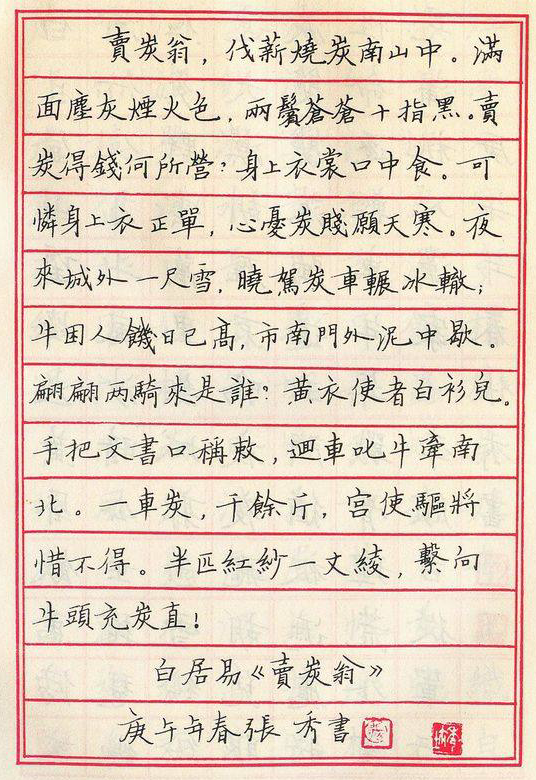 賣炭翁，伐薪燒炭南山中。滿
面塵灰煙火色，兩鬢蒼蒼十指黑。賣
炭得錢何所營？身上衣裳口中食。可
憐身上衣正單，心憂炭賤願天寒。夜
來城外一尺雪，曉駕炭車輾冰轍；
牛困人饑日已高，市南門外泥中歇。
翩翩两騎來是誰？黃衣使者白衫兒。
手把文書口稱敕，迴車叱牛牽南
北。一車炭，千餘斤，宮使驅將
惜不得。半匹紅紗一丈綾，繫向
牛頭充炭直！
白居易《賣炭翁》
庚午年春張秀書